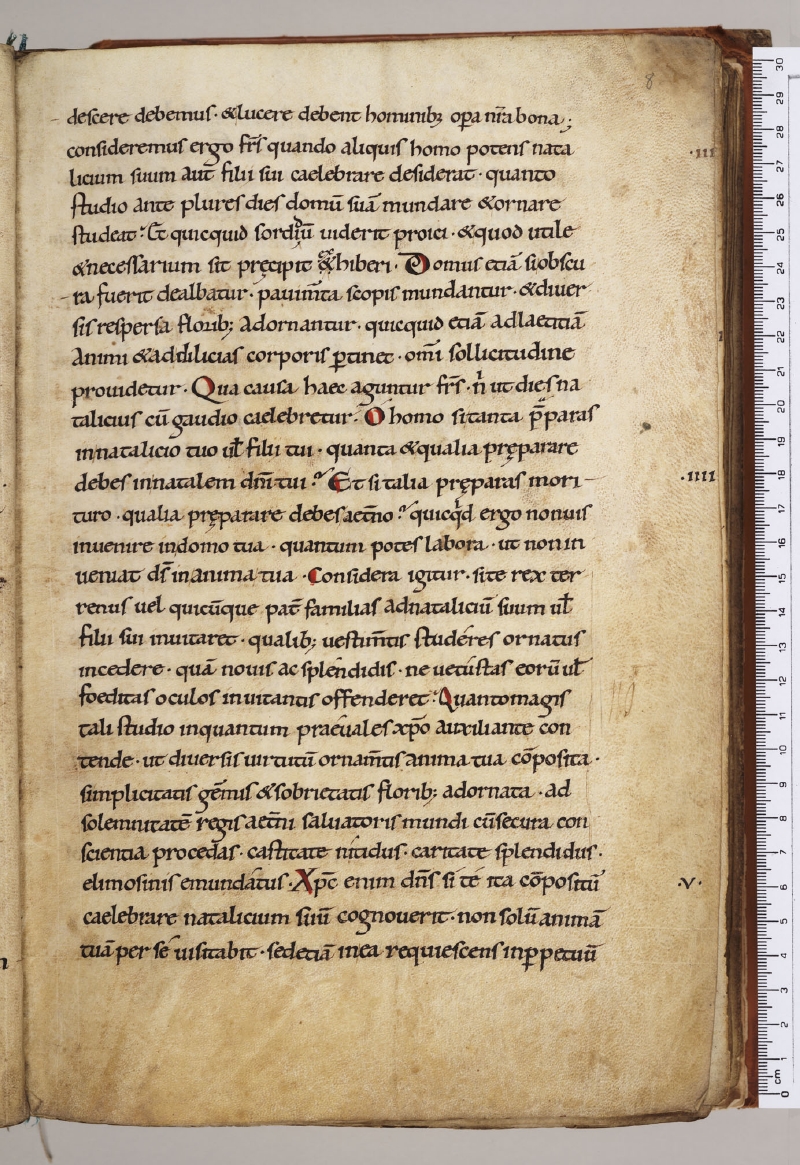 8
descere debemus · &lucere debent hominib; oꝑa nr̃a bona ;
consideremus ergo fr̃s quando aliquis homo potens nata
licium suum aut filii sui caelebrare desiderat · quanto
studio ante plures dies domū suā mundare &ornare
studeat : Et quicquid sordiū uiderit proici · &quod utile
&necessarium sit pręcipit exhiberi · Domus etiā siobscu
ra fuerit dealbatur · pauim̄ta scopis mundantur · &diuer
sis respersa florib; adornantur · quicquid etiā adlaetitiā
animi &addilicias corporis ꝑtinet · omī sollicitudine
prouidetur · Qua causa haec aguntur fr̃s · n̄ ut dies na
talicius cū gaudio caelebretur · O homo sitanta p̄paras
innatalicio tuo ul̄ filii tui · quanta &qualia pręparare
debes innatalem dn̄i tui ? Et si talia pręparas mori
turo · qualia pręparare debes aet̄no ? quicq̇d ergo nonuis
inuenire indomo tua · quantum potes labora · ut non in
ueniat ds̄ inanima tua · Considera igitur · si te rex ter
renus uel quicūque pat̄ familias adnataliciū suum ul̄
filii sui inuitaret · qualib; uestim̄tis studéres ornatus
incedere · quā nouis ac splendidis · ne uetustas eorū ul̄
foeditas oculos inuitantis offenderet : Quantomagis
tali studio inquantum praeuales xp̄o auxiliante con
tende · ut diuersis uirtutū ornam̄tis anima tua cōposita ·
simplicitatis gēmis &sobrietatis florib; adornata · ad
solemnitatē regis aet̄ni saluatoris mundi cū secura con
scientia procedas · castitate nitidus · caritate splendidus ·
elimosinis emundatus · Xp̄c enim dn̄s si te ita cōpositū
caelebrare natalicium suū cognouerit · non solū animā
tuā per sé uisitabit · sedetiā inea requiescens inꝑpetuū
·III
·IIII
·V·